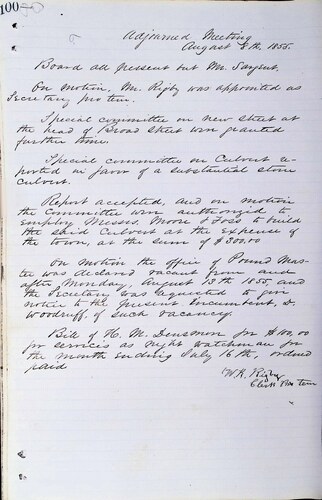 100
Adjourned Meeting
August 8th, 1855.
Board all present but Mr. Sargent.
On motion, Mr. Rigby was appointed as
Secretary pro tem.
Special committee on new street at
the head of Broad Street were granted
further time.
Special committee on Culvert re-
ported in favor of a substantial stone
culvert.
Report accepted, and on motion
the Committee were authorized to
employ Messrs. Moore & Foss to build
the said Culvert at the expense of
the town, at the sum of $300.00
On motion the office of Pound Mas-
ter was declared vacant from and
after Monday, August 13th 1855, and
the Secretary was requested to give
notice to the present incumbent, D.
Woodruff, of such vacancy.
Bill of H. M. Densmon for
for services as night watchman for
the month ending July 16th, ordered
paid
W. R. Rigby
Clerk Pro tem